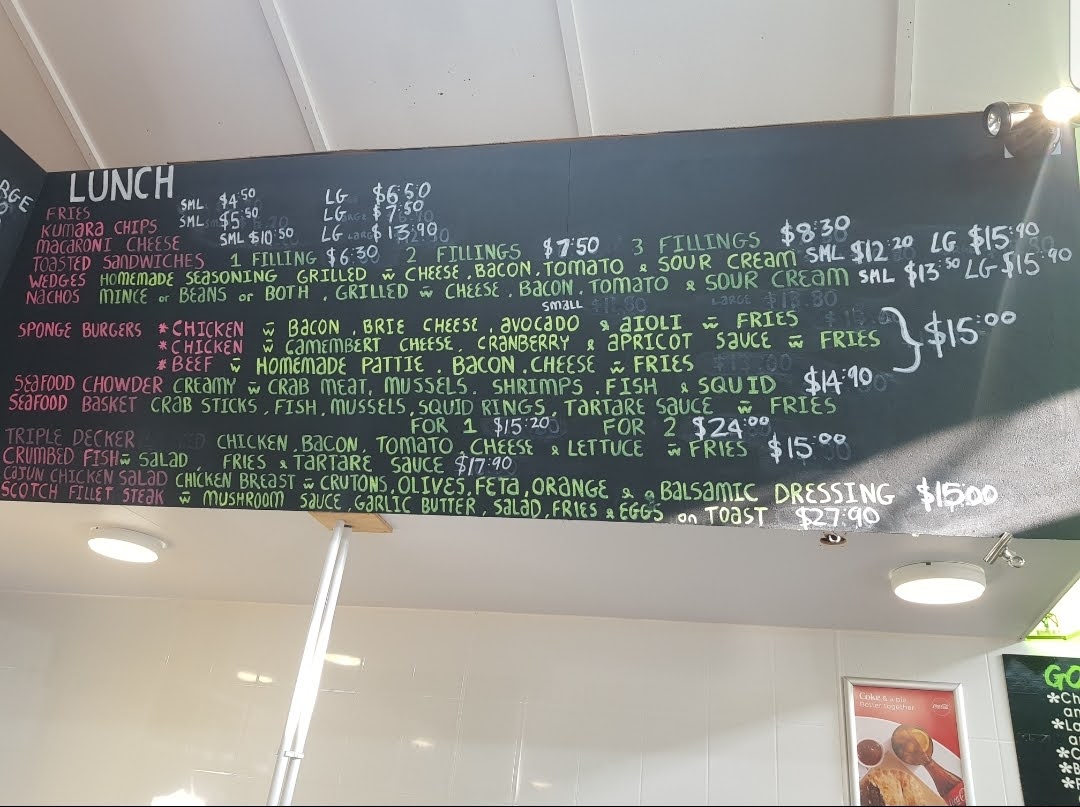 LUNCH
FRIES SML $4.50 LG $6.50
KUMARA CHIPS SML $5.50 LG $7.50
MACARONI CHEESE SML $10.50 LG $13.90
TOASTED SANDWICHES 1 FILLING $6.30 2 FILLINGS $7.50 3 FILLINGS $8.30
WEDGES HOMEMADE SEASONING GRILLED w CHEESE, BACON, TOMATO & SOUR CREAM SML $12.20 LG $15.90
NACHOS MINCE or BEANS or BOTH, GRILLED w CHEESE, BACON, TOMATO & SOUR CREAM SML $13.50 LG $15.90
SMALL LARGE
SPONGE BURGERS *CHICKEN w BACON, BRIE CHEESE, AVOCADO & AIOLI w FRIES
*CHICKEN w CAMEMBERT CHEESE, CRANBERRY & APRICOT SAUCE w FRIES } $15.00
*BEEF w HOMEMADE PATTIE, BACON, CHEESE w FRIES
SEAFOOD CHOWDER CREAMY w CRAB MEAT, MUSSELS, SHRIMPS, FISH & SQUID $14.90
SEAFOOD BASKET CRAB STICKS, FISH, MUSSELS, SQUID RINGS, TARTARE SAUCE w FRIES
FOR 1 $15.20 FOR 2 $24.00
TRIPLE DECKER CHICKEN, BACON, TOMATO, CHEESE & LETTUCE w FRIES $15.00
CRUMBED FISH w SALAD, FRIES & TARTARE SAUCE $17.90
CAJUN CHICKEN SALAD CHICKEN BREAST w CRUTONS, OLIVES, FETA, ORANGE & a BALSAMIC DRESSING $15.00
SCOTCH FILLET STEAK w MUSHROOM SAUCE, GARLIC BUTTER, SALAD, FRIES & EGGS on TOAST $27.90
Coke & a pie
Better together
GO
*Ch
an
*La
a
*C
*B